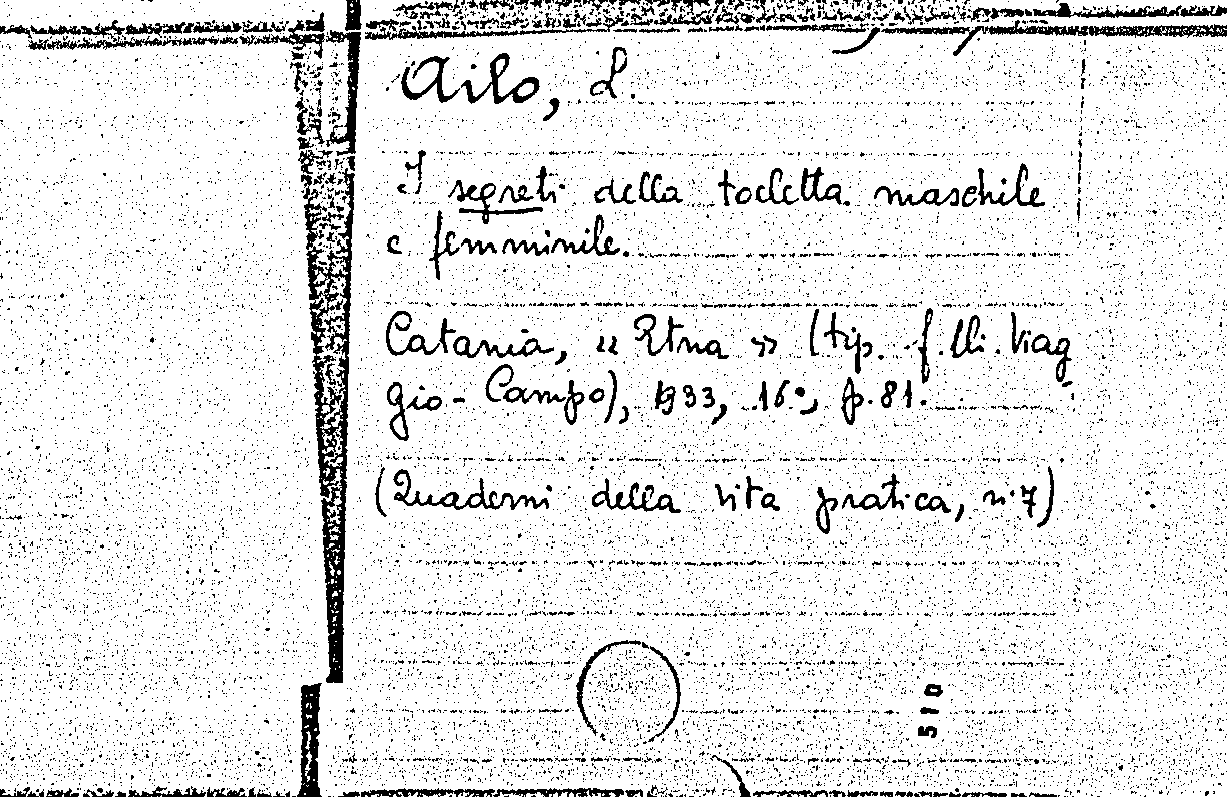 Ailo, L.
I segreti della toeletta maschile
e femminile.
Catania, « Etna » (tip. f.lli. Viag
gio-Campo), 1933, 16°, p. 81.
(Quaderni della vita pratica, n. 7)
510